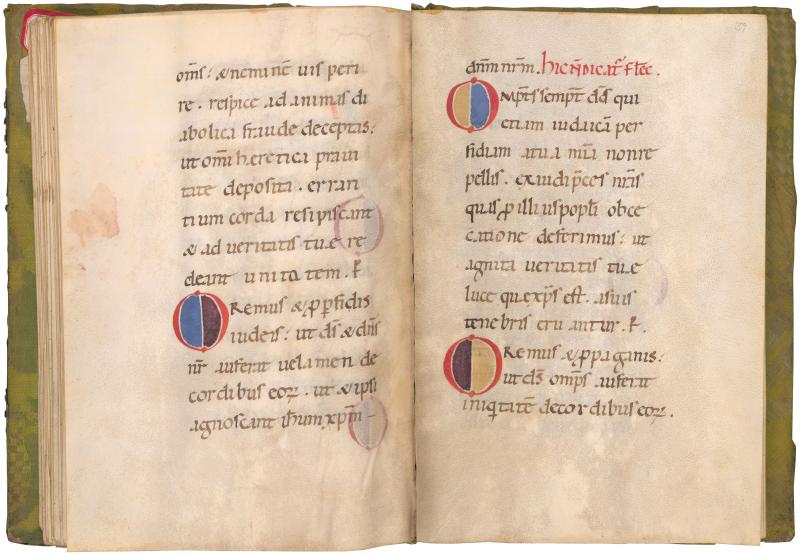 om̄s: & nemine᷒ uis peri
re. respice ad animas di
abolica fraude deceptas:
ut om̄i heretica praui
tate deposita. erran
tium corda resipiscant
& ad veritatis tuę re
deant unitatem. ꝶ
Oremus & p̱ p̱fidis
iudeis: ut ds̄ & dn̄s
nr̄ auferat uelamen de
cordibus eoꝝ. ut & ipsi
agnoscant ih̄um xp̄m
dn̄m nr̄m. hic n̄ dicat᷑ flec̄.
Omp̄s semp̄t ds̄ qui
etiam iudaicā per
fidiam a tua mīa non re
pellis. exaudi p̄ces nr̄as
quas ꝓ illius popl̄i obce
catione deferimus: ut
agnita ueritatis tuę
luce que xp̄s est. a suis
tenebris eruantur. ꝶ.
Oremus & ꝓ paganis:
ut ds̄ omp̄s auferat
iniq̄tatē de cordibus eoꝝ.